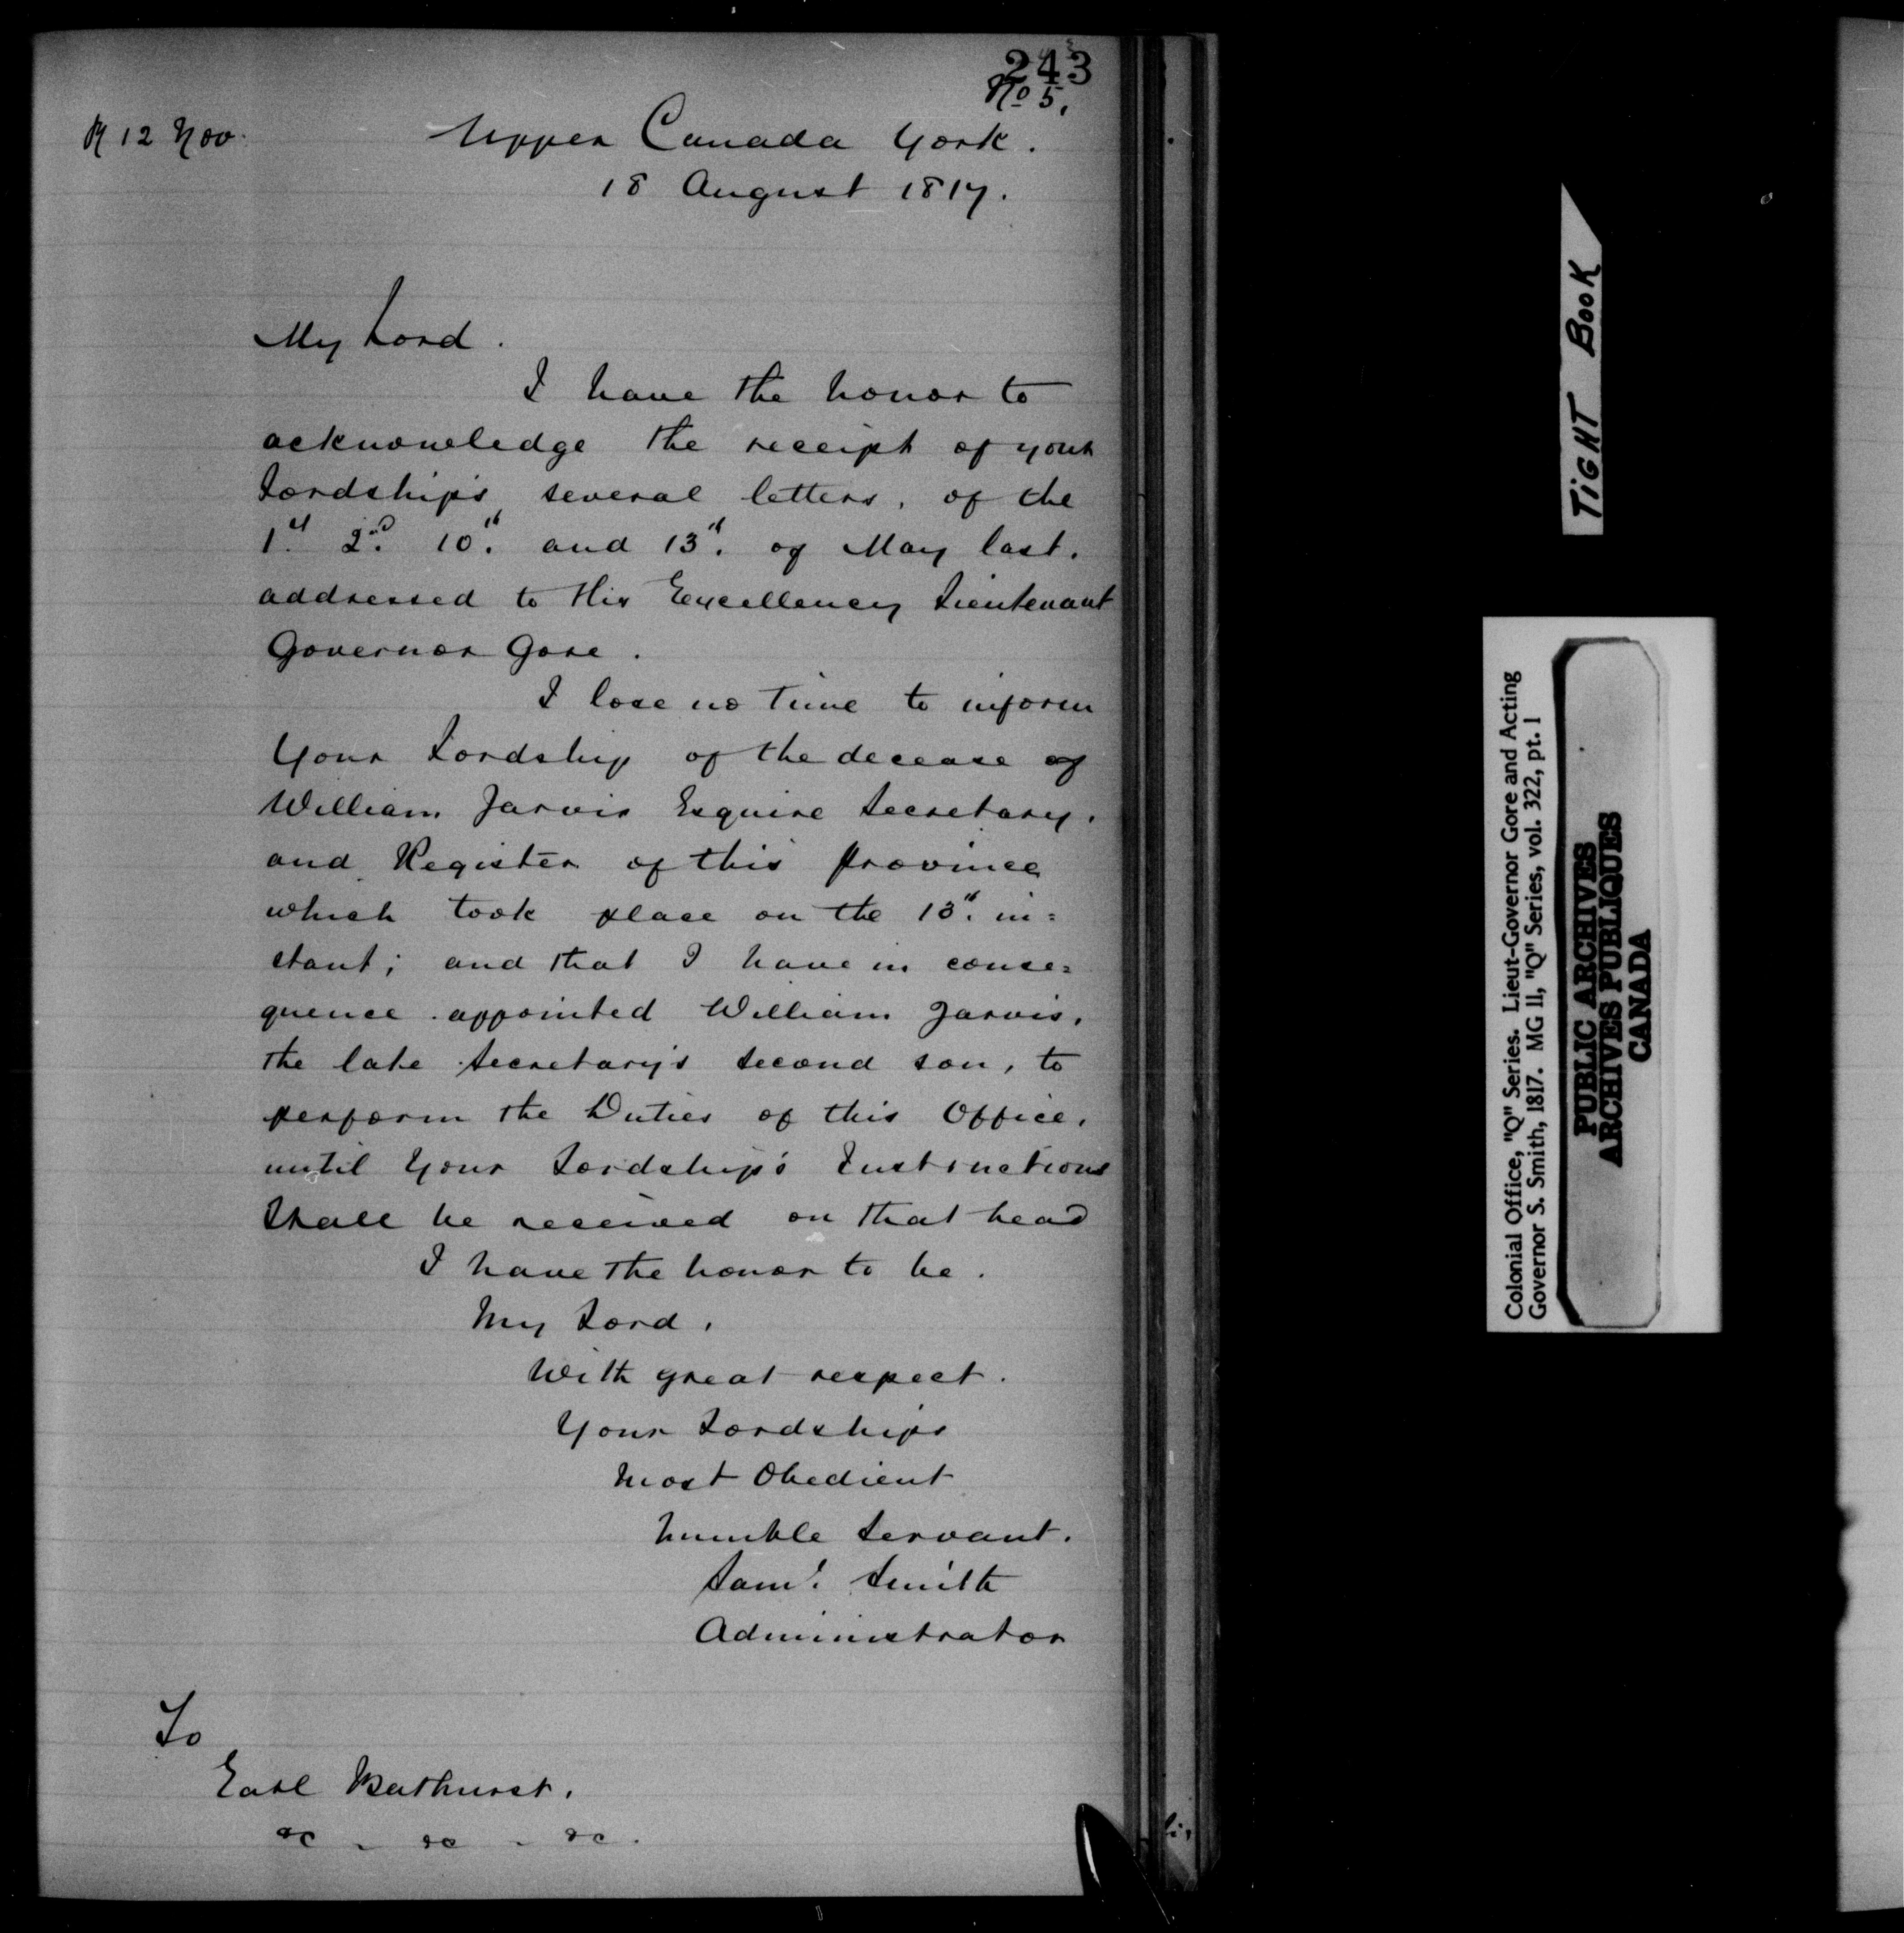 243
No 5.
R 12 Nov.
Upper Canada York.
18 August 1817.
My Lord.
I have the honor to
acknowledge the receipt of your
Lordship's several letters, of the
1st 2nd 10th and 13th of May last.
addressed to His Excellency Lieutenant
Governor Gore.
I lose no time to inform
Your Lordship of the decease of
William Jarvis Esquire Secretary,
and Register of this Province
which took place on the 13th in=
stant; and that I have in conse=
quence appointed William Jarvis,
the late Secretary's second son, to
perform the Duties of this Office,
until Your Lordship's Instructions
Shall be received on that head
I have the honor to be.
My Lord,
With great respect.
Your Lordships
Most Obedient
humble Servant.
Saml. Smith
Administrator
To
Earl Bathurst.
&c - &c - &c.
TIGHT BOOK
Colonial Office, "Q" Series. Lieut-Governor Gore and Acting
Governor S. Smith, 1817. MG 11, "Q" Series, vol. 322, pt. 1
PUBLIC ARCHIVES
ARCHIVES PUBLIQUES
CANADA